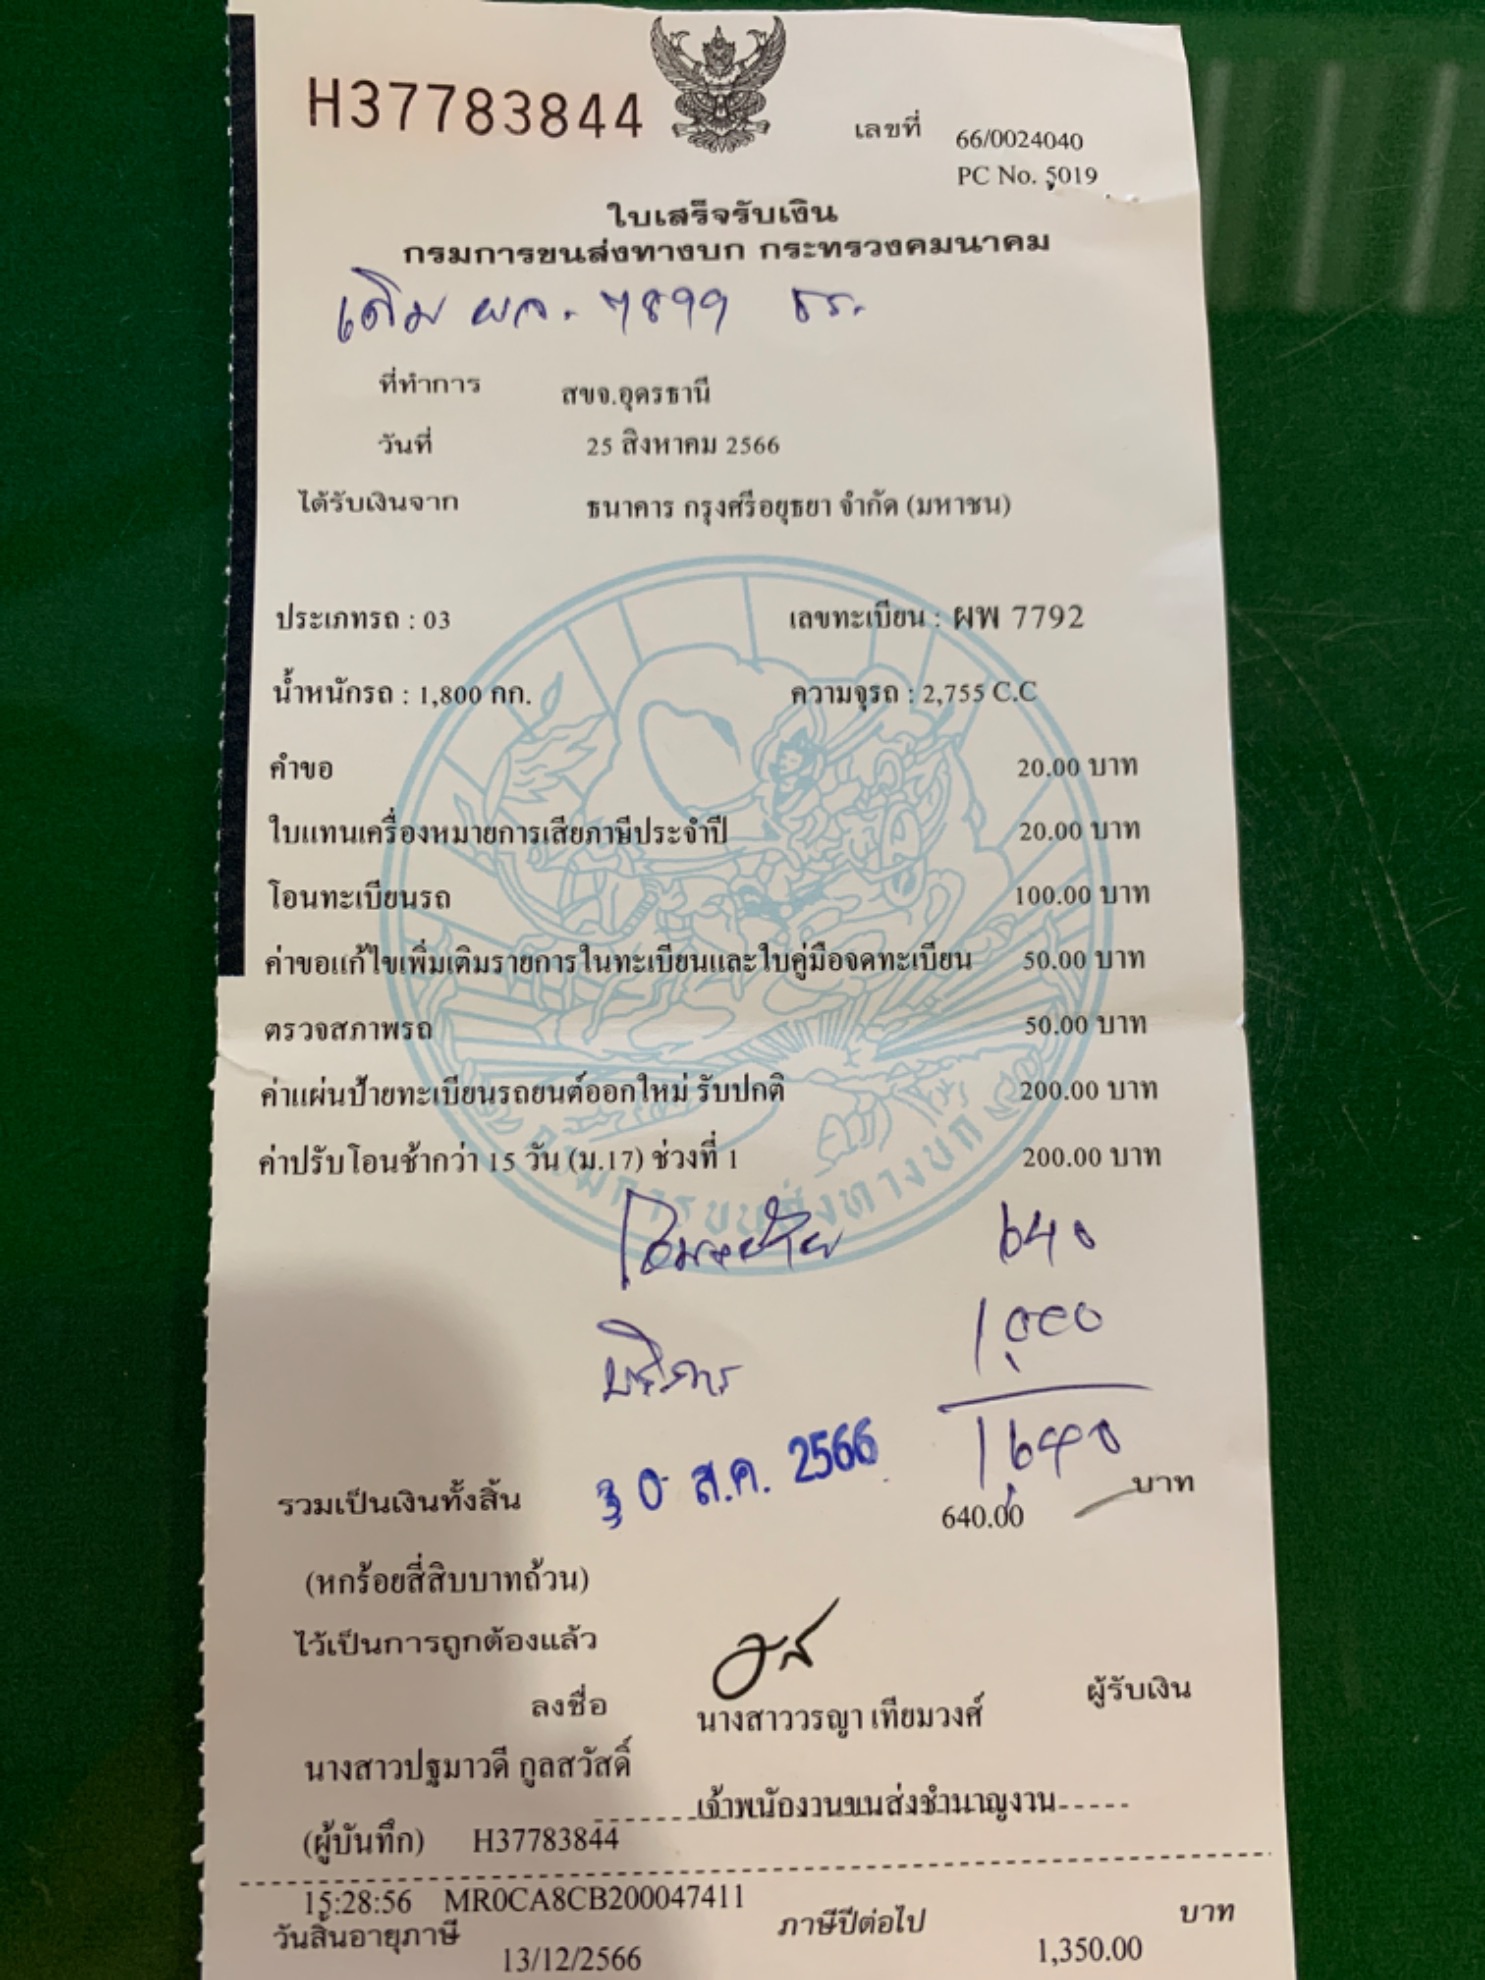 H37783844
เลขที่ 66/0024040
PC No. 5019
ใบเสร็จรับเงิน
กรมการขนส่งทางบก กระทรวงคมนาคม
เดิม ผก. 7899 ธร.
ที่ทำการ สขจ.อุดรธานี
วันที่ 25 สิงหาคม 2566
ได้รับเงินจาก ธนาคาร กรุงศรีอยุธยา จำกัด (มหาชน)
ประเภทรถ : 03 เลขทะเบียน : ผพ 7792
น้ำหนักรถ : 1,800 กก. ความจุรถ : 2,755 C.C
คำขอ 20.00 บาท
ใบแทนเครื่องหมายการเสียภาษีประจำปี 20.00 บาท
โอนทะเบียนรถ 100.00 บาท
ค่าขอแก้ไขเพิ่มเติมรายการในทะเบียนและใบคู่มือจดทะเบียน 50.00 บาท
ตรวจสภาพรถ 50.00 บาท
ค่าแผ่นป้ายทะเบียนรถยนต์ออกใหม่ รับปกติ 200.00 บาท
ค่าปรับโอนช้ากว่า 15 วัน (ม.17) ช่วงที่ 1 200.00 บาท
กรมการขนส่งทางบก
640
บริการ 1,000
1,640
30 ส.ค. 2566
รวมเป็นเงินทั้งสิ้น 640.00 บาท
(หกร้อยสี่สิบบาทถ้วน)
ไว้เป็นการถูกต้องแล้ว
ลงชื่อ ผู้รับเงิน
นางสาววรญา เทียมวงศ์
นางสาวปฐมาวดี กูลสวัสดิ์
เจ้าพนักงานขนส่งชำนาญงาน
(ผู้บันทึก) H37783844
15:28:56 MR0CA8CB200047411
วันสิ้นอายุภาษี 13/12/2566 ภาษีปีต่อไป 1,350.00 บาท